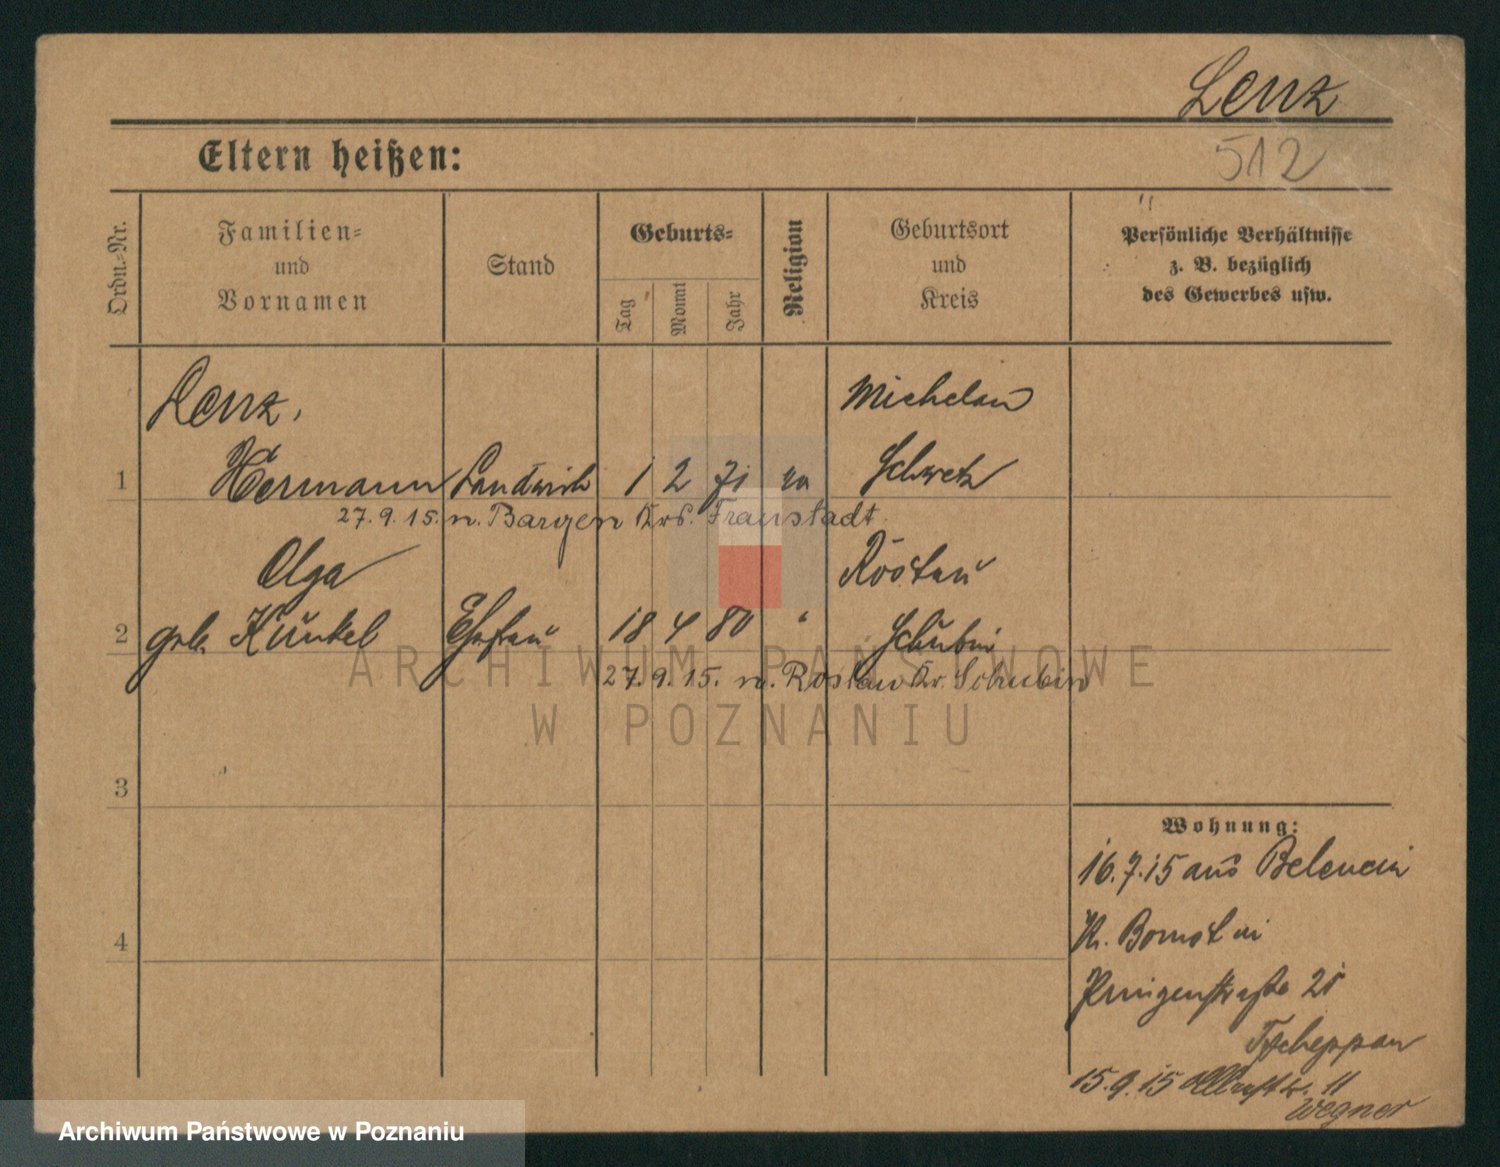 Lenz
512
Eltern heißen:
Ordn.-Nr.
Familien-
und
Vornamen
Stand
Geburts-
Tag
Monat
Jahr
Religion
Geburtsort
und
Kreis
Persönliche Verhältnisse
z. B. bezüglich
des Gewerbes usw.
Lenz,
Michelau
1 Hermann Landwirth 1 2 71 Schwetz
27. 9. 15. n. Bargen Krs. Fraustadt.
Olga
Rostau
2 geb. Kunkel Ehefrau 18 4 80 " Schubin
27. 9. 15. n. Rostau Kr. Schubin
3
4
Wohnung:
16.7.15 aus Belencin
Kr. Bomst in
Prinzenstraße 21
Tscheppan
15.9.15 11
Wegner
ARCHIWUM PAŃSTWOWE
W POZNANIU
Archiwum Państwowe w Poznaniu